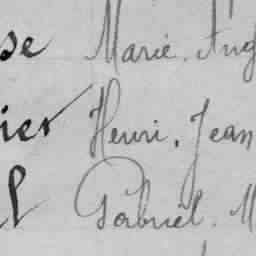 se Marie. Ang
ier Henri. Jean
l Gabriel. M